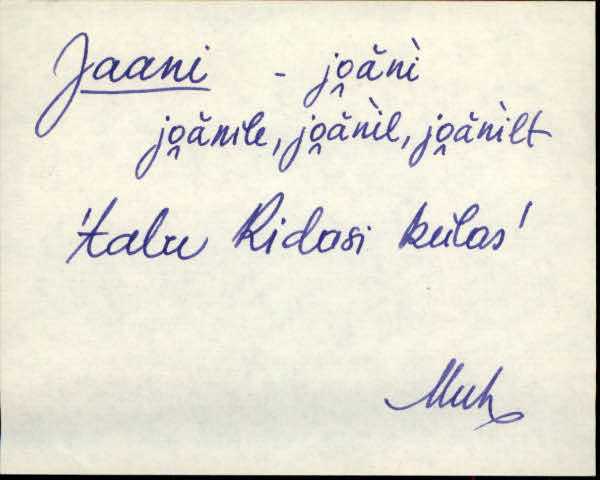 Jaani - jo̭ăǹi
jo̭ănile, jo̭ăǹil, jo̭ăǹilt
'talu Ridasi külas'
Muh